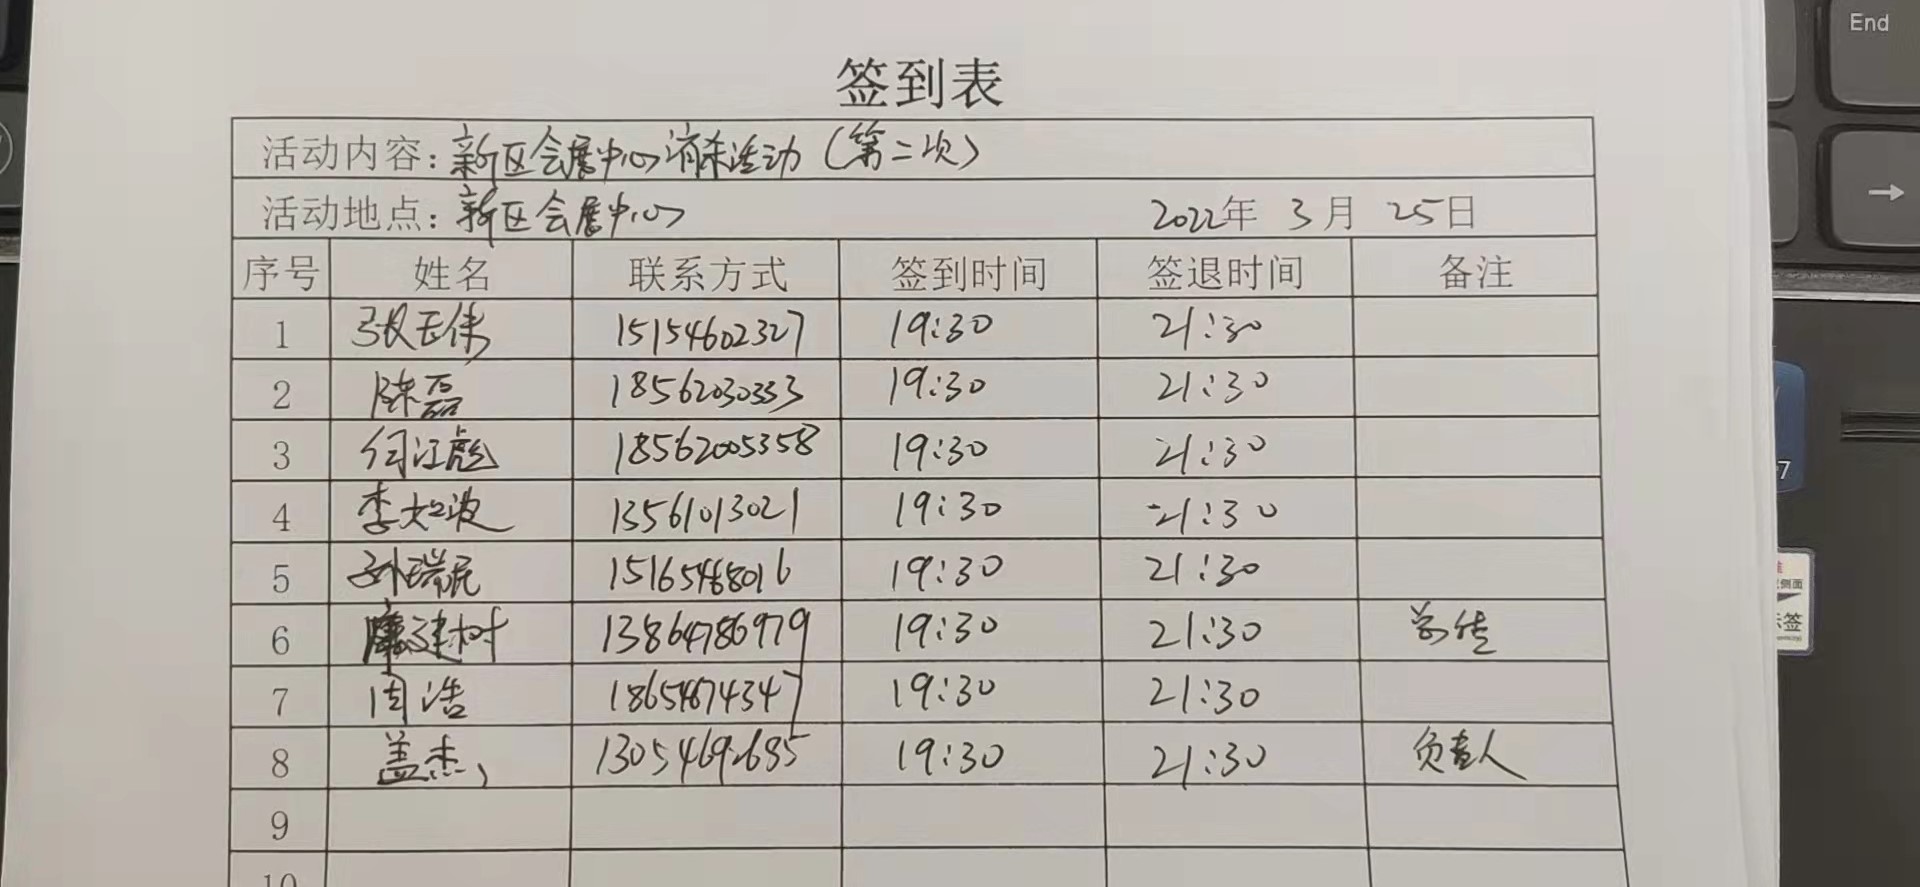 End
签到表
活动内容：新区会展中心消杀活动（第二次）
活动地点：新区会展中心 2022年 3月 25日
序号 姓名 联系方式 签到时间 签退时间 备注
1 张玉伟 15154602327 19:30 21:30
2 陈磊 18562030333 19:30 21:30
3 何江彪 18562005358 19:30 21:30
4 李如波 13561013021 19:30 21:30
5 孙瑞民 15165468016 19:30 21:30
6 廉建树 13864786979 19:30 21:30 宣传
7 周浩 18654674347 19:30 21:30
8 盖杰 13054692685 19:30 21:30 负责人
9
10
→
7
侧面
签